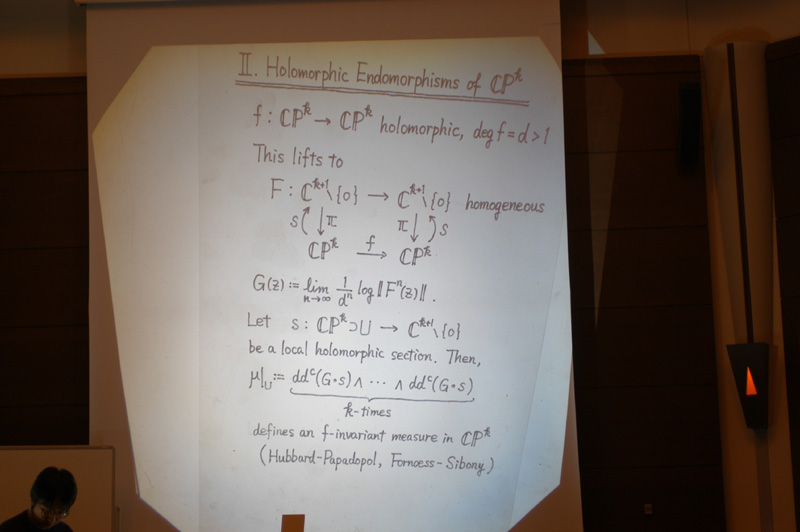 II. Holomorphic Endomorphisms of ℂℙᵏ
f : ℂℙᵏ → ℂℙᵏ holomorphic, deg f = d > 1
This lifts to
F : ℂᵏ⁺¹\{0} → ℂᵏ⁺¹\{0} homogeneous
s ↓π π↓ s
ℂℙᵏ f→ ℂℙᵏ
G(z) := lim n→∞ 1/dⁿ log‖Fⁿ(z)‖.
Let s : ℂℙᵏ ⊃ U → ℂᵏ⁺¹\{0}
be a local holomorphic section. Then,
μ|U := ddᶜ(G∘s) ∧ ⋯ ∧ ddᶜ(G∘s)
k-times
defines an f-invariant measure in ℂℙᵏ
(Hubbard-Papadopol, Fornœss-Sibony)